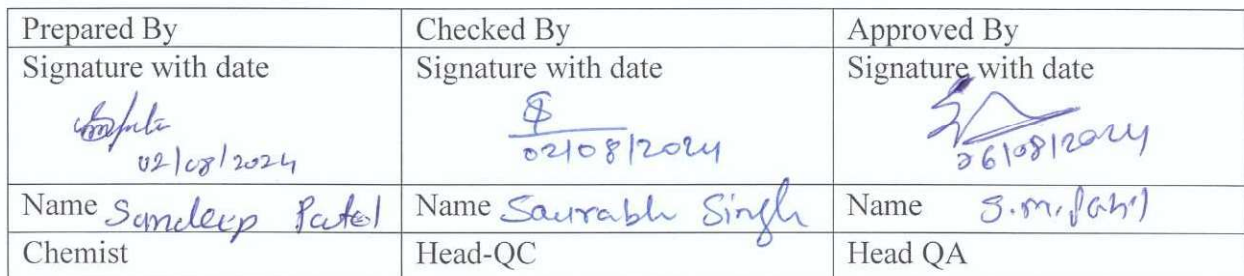 Prepared By Checked By Approved By
Signature with date Signature with date Signature with date
02/08/2024 02/08/2024 06/08/2024
Name Sandeep Patel Name Saurabh Singh Name S.M.
Chemist Head-QC Head QA